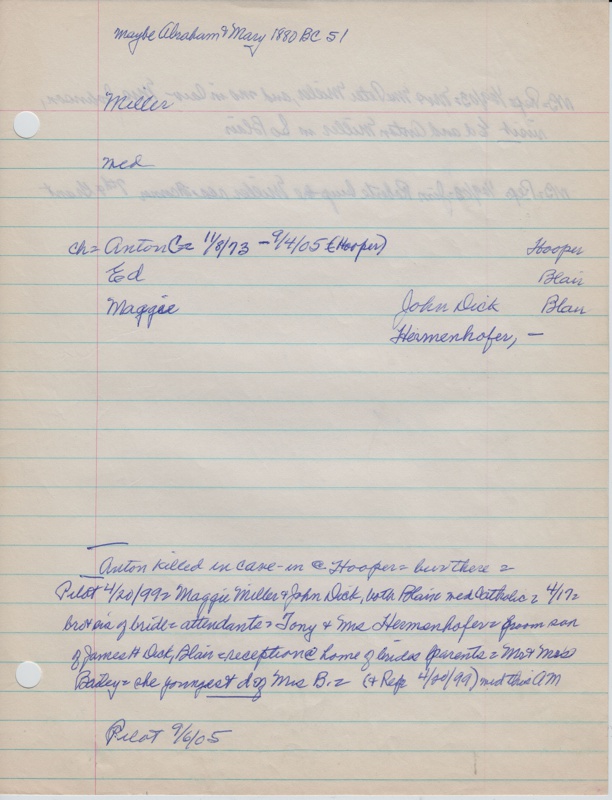 maybe Abraham & Mary 1880 BC 51
Miller
med
ch = Anton C = 11/8/73 - 9/4/05 (Hooper) Hooper
Ed Blair
Maggie John Dick Blair
Hermenhofer, -
Anton killed in cave-in @ Hooper = bur there =
Pilot 4/20/99 = Maggie Miller & John Dick, both Blair med Catholic = 4/17 =
bro & sis of bride = attendants = Tony & Ms Hermenhofer = groom son
of James H Dick, Blair = reception @ home of brides parents = Mr & Mrs
Bailey = she youngest d of Mrs B. = (& Rep 4/20/99) med this AM
Pilot 9/6/05